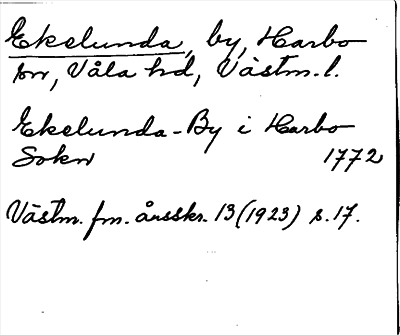 Ekelunda, by, Harbo
sn, Våla hd, Västm. l.
Ekelunda-By i Harbo
Sokn 1772
Västm. fm. årsskr. 13 (1923) s. 17.